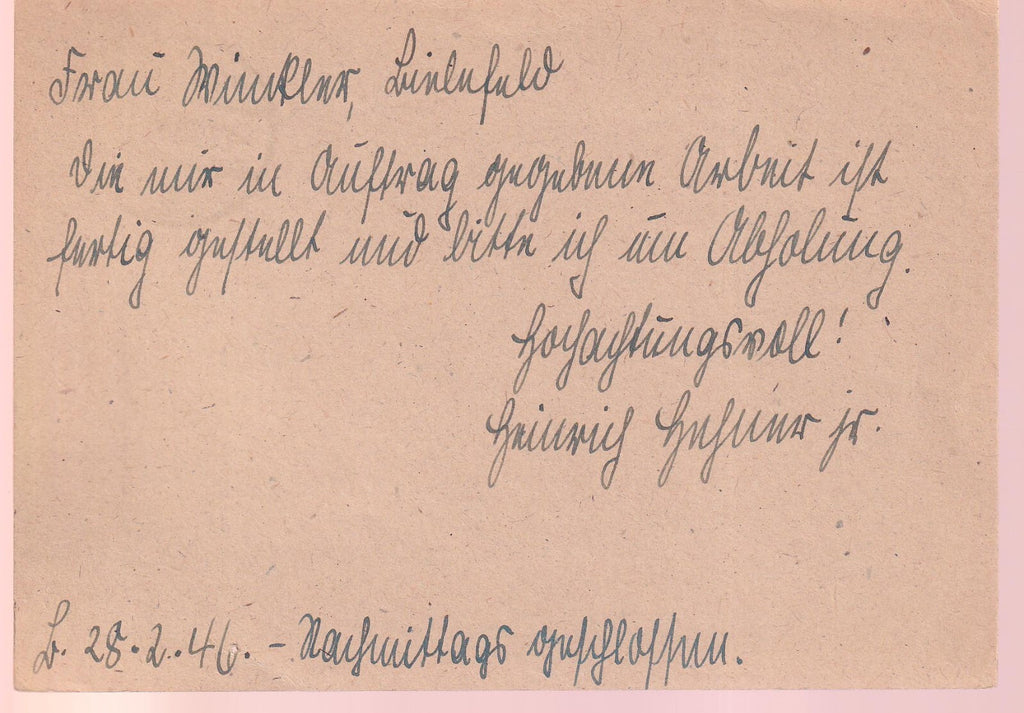 Frau Winkler, Bielefeld
Die mir in Auftrag gegebene Arbeit ist
fertig gestellt und bitte ich um Abholung.
Hochachtungsvoll!
Heinrich Hehner jr.
B. 28.2.46. - Nachmittags geschlossen.